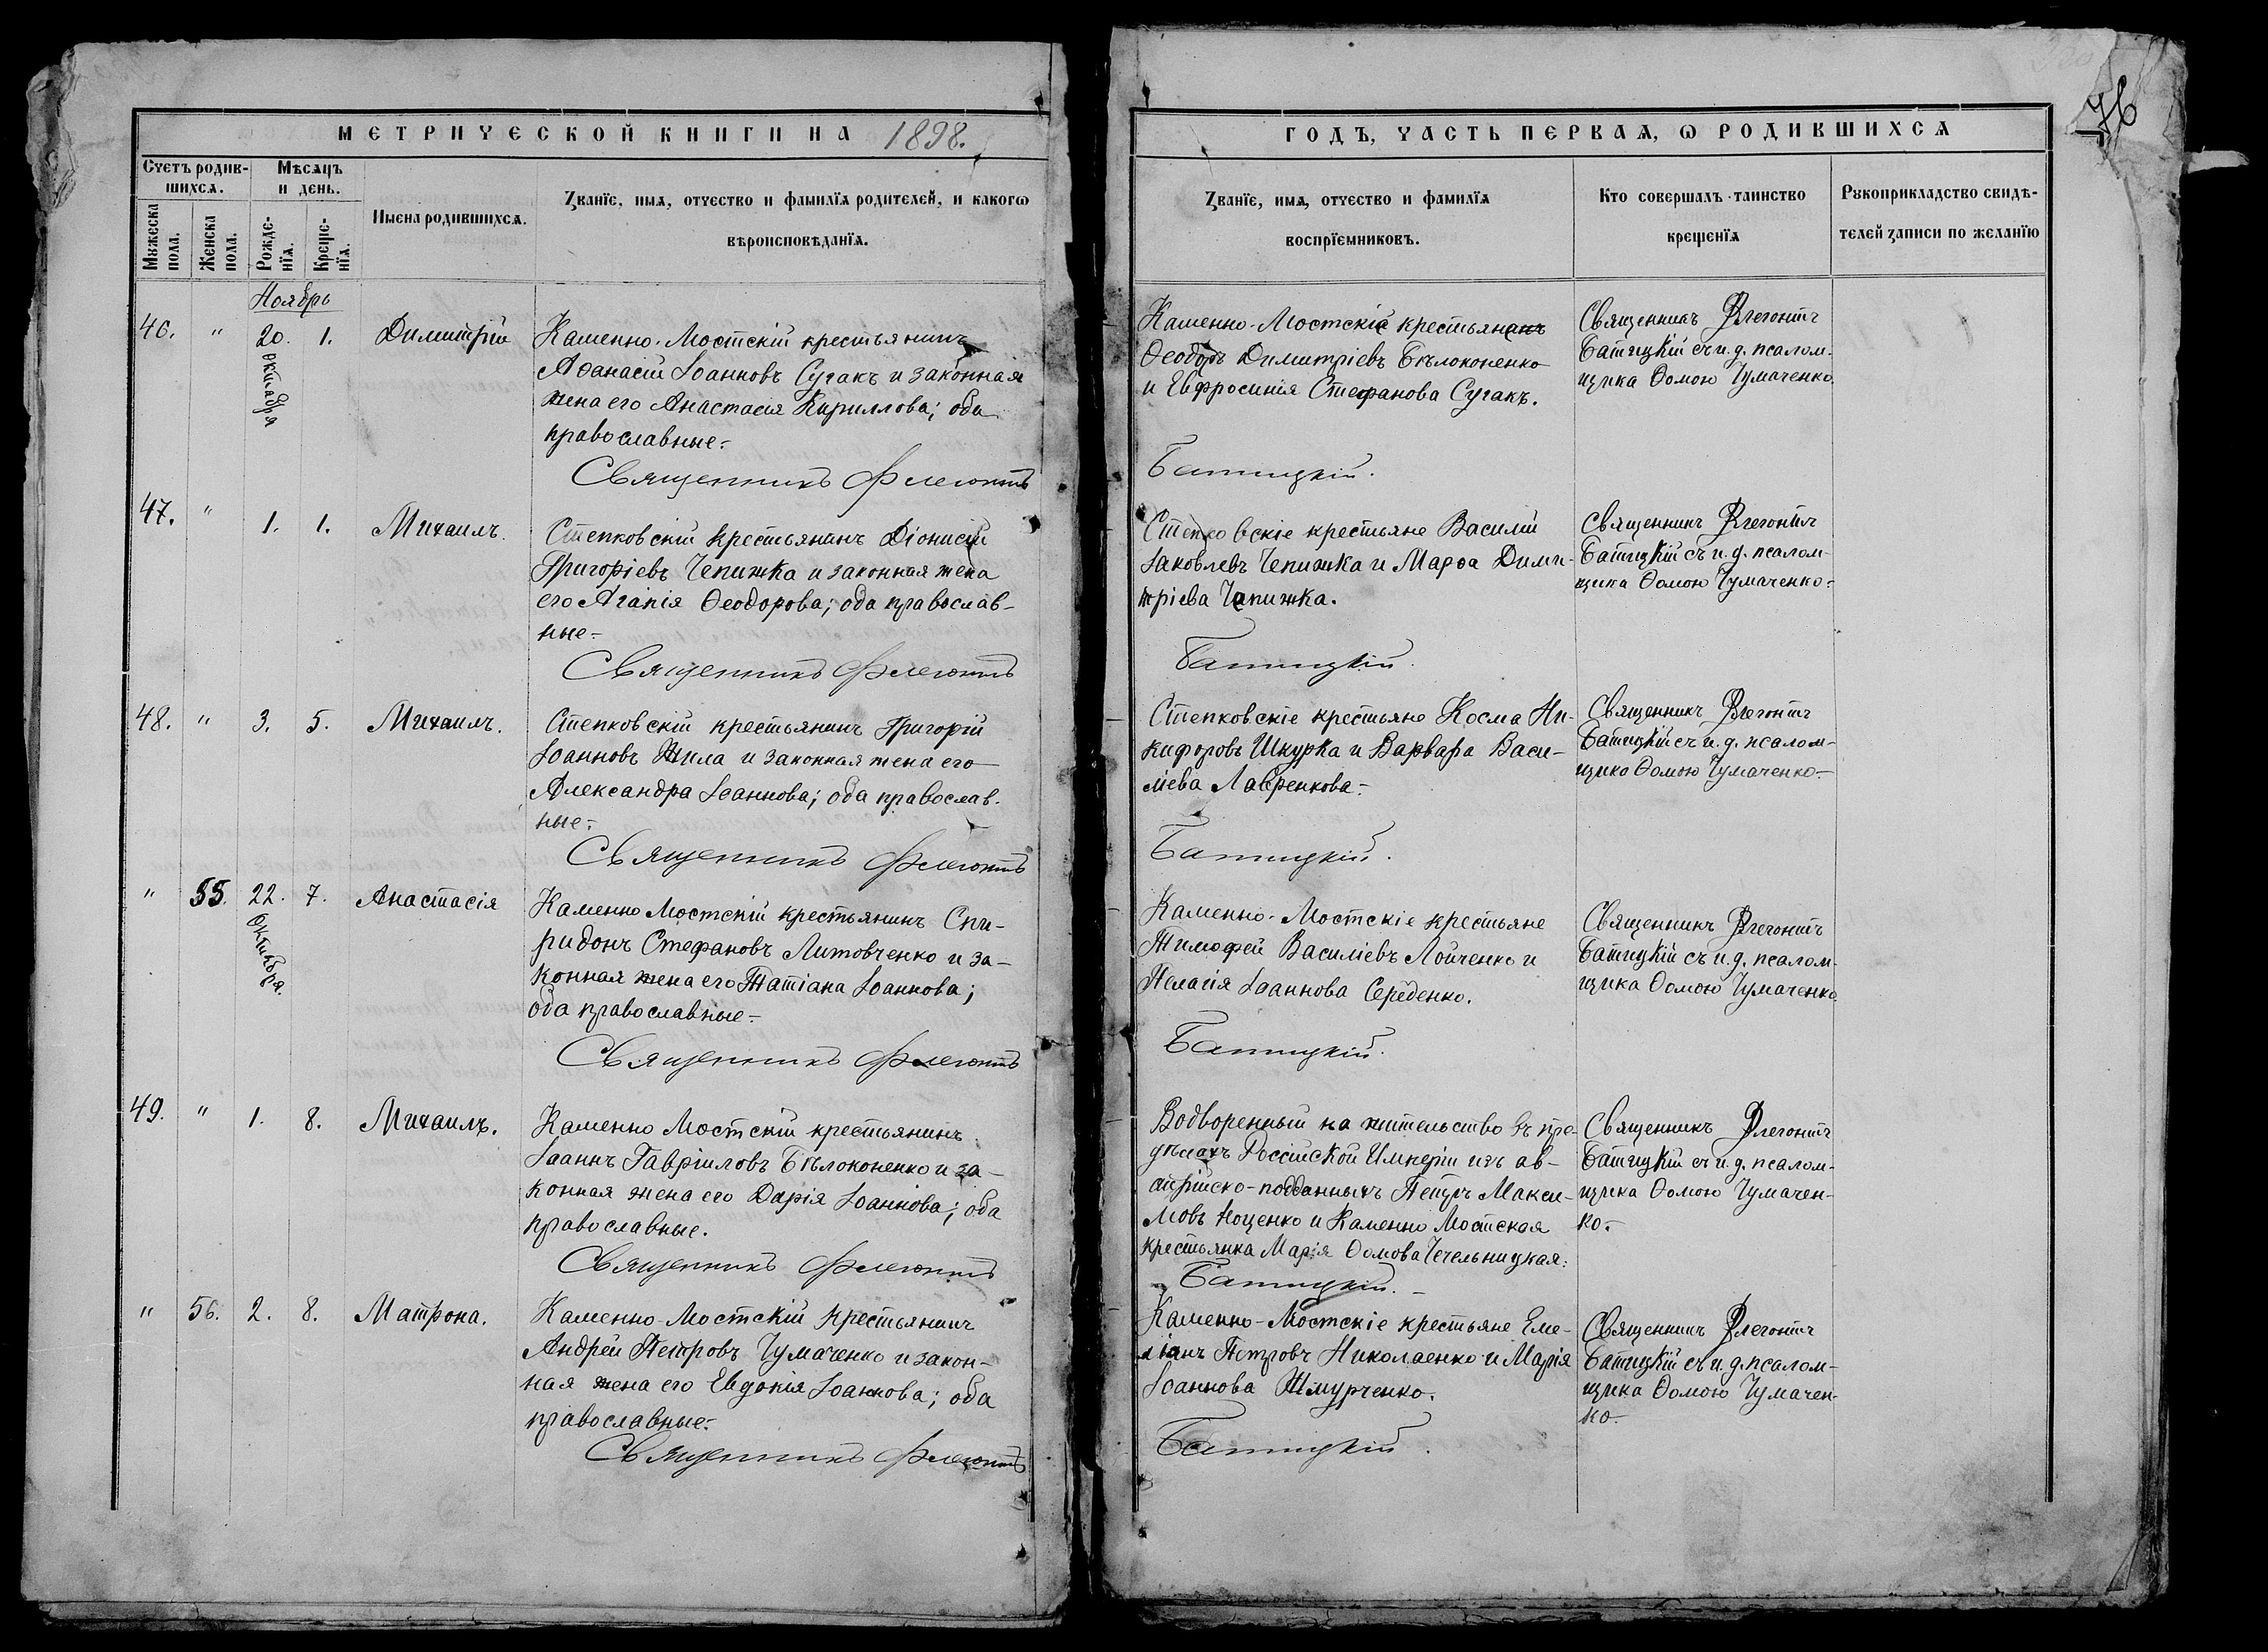 МЕТРИЧЕСКОЙ КНИГИ НА 1898.
Счетъ родив-
шихся.
Мѣсяцъ
и день.
Мужеска
пола.
Женска
пола.
Рожде-
нїя.
Креще-
нїя.
Имена родившихся.
Званїе, имя, отчество и фамилїя родителей, и какогѡ
вѣроисповѣданїя.
Ноябрь
46. " 20. 1. Димитрій
октября
Каменно-Мостскій крестьянинъ
Аѳанасій Іоанновъ Сугакъ и законная
жена его Анастасія Кириллова; оба
православные.-
Священникъ Флегонтъ
47. " 1. 1. Михаилъ.
Степковскій крестьянинъ Діонисій
Григоріевъ Чепижка и законная жена
его Агапія Ѳеодорова; оба православ-
ные.-
Священникъ Флегонтъ
48. " 3. 5. Михаилъ.
Степковскій крестьянинъ Григорій
Іоанновъ Жила и законная жена его
Александра Іоаннова; оба православ-
ные.-
Священникъ Флегонтъ
" 55. 22. 7. Анастасія
Октября.
Каменно Мостскій крестьянинъ Спи-
ридонъ Стефановъ Литовченко и за-
конная жена его Татіана Іоаннова;
оба православные.-
Священникъ Флегонтъ
49. " 1. 8. Михаилъ.
Каменно Мостскій крестьянинъ
Іоаннъ Гавріиловъ Бѣлоконенко и за-
конная жена его Дарія Іоаннова; оба
православные.
Священникъ Флегонтъ
" 56. 2. 8. Матрона.
Каменно-Мостскій крестьянинъ
Андрей Петровъ Чумаченко и закон-
ная жена его Евдокія Іоаннова; оба
православные.-
Священникъ Флегонтъ
76
ГОДЪ, ЧАСТЬ ПЕРВАЯ, Ѡ РОДИВШИХСЯ
Званїе, имя, отчество и фамилїя
воспрїемниковъ.
Кто совершалъ таинство
крещенїя
Рукоприкладство свидѣ-
телей записи по желанїю
Каменно-Мостскіе крестьяне
Ѳеодоръ Димитріевъ Бѣлоконенко
и Евфросинія Стефанова Сугакъ.
Батицкій.
Священникъ Флегонтъ
Батицкій съ и.д. псалом-
щика Ѳомою Чумаченко.
Степковскіе крестьяне Василій
Іаковлевъ Чепижка и Марѳа Дими-
тріева Чепижка.
Батицкій.
Священникъ Флегонтъ
Батицкій съ и.д. псалом-
щика Ѳомою Чумаченко.-
Степковскіе крестьяне Косма Ни-
кифоровъ Шкурка и Варвара Васи-
ліева Лавренкова.-
Батицкій.
Священникъ Флегонтъ
Батицкій съ и.д. псалом-
щика Ѳомою Чумаченко.-
Каменно-Мостскіе крестьяне
Тимофей Василіевъ Лойченко и
Пелагія Іоаннова Середенко.
Батицкій.
Священникъ Флегонтъ
Батицкій съ и.д. псалом-
щика Ѳомою Чумаченко
Водворенный на жительство въ пре-
дѣлахъ Россійской Имперіи изъ ав-
стрійско-подданныхъ Петръ Макси-
мовъ Ноценко и Каменно Мостская
крестьянка Марія Ѳомова Чечельницкая.
Батицкій.-
Священникъ Флегонтъ
Батицкій съ и.д. псалом-
щика Ѳомою Чумачен-
ко.-
Каменно-Мостскіе крестьяне Еме-
ліанъ Петровъ Николаенко и Марія
Іоаннова Шмурченко.
Батицкій.
Священникъ Флегонтъ
Батицкій съ и.д. псалом-
щика Ѳомою Чумачен-
ко.-